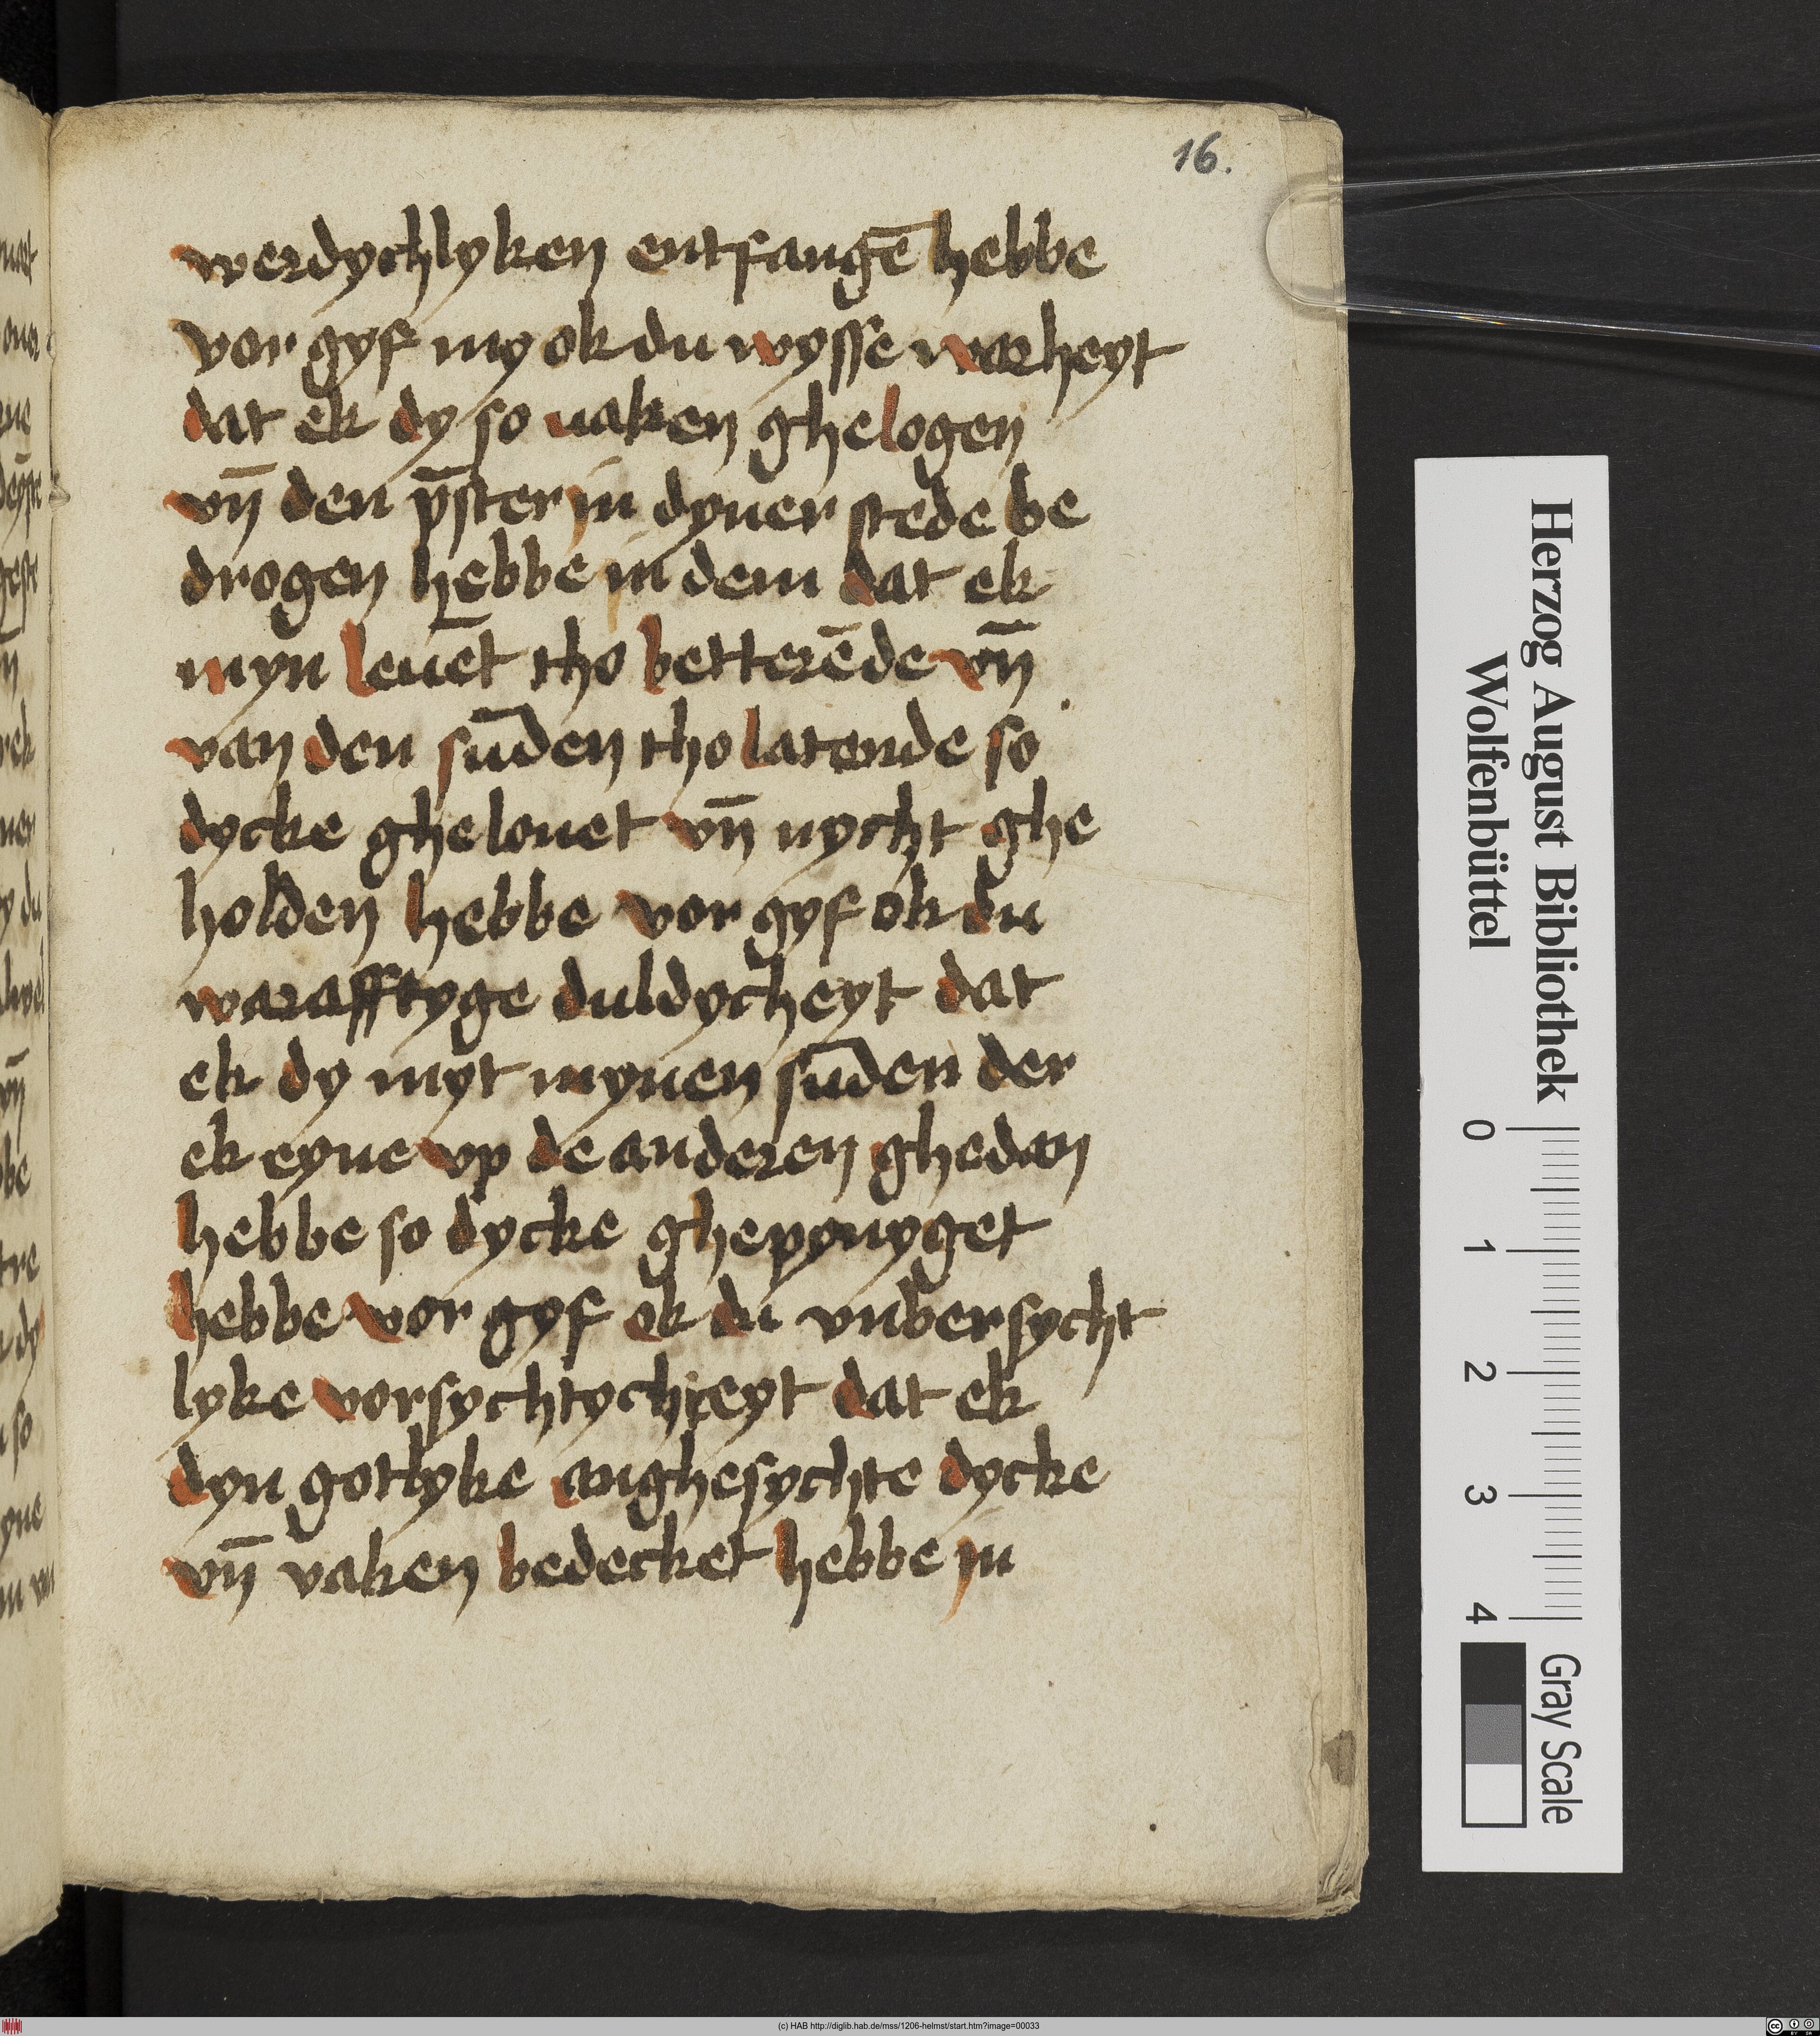 16.
werdychlyken entfangē hebbe
vor gyf my ok du wysse warheyt
dat ek dy so uaken ghelogen
vn̄ den p̄ster in dyner stede be
drogen hebbe in dem dat ek
myn leuēt tho betterēde vn̄
van den sūden tho latende so
dycke ghelouet vn̄ nycht ghe
holden hebbe vor gyf ok du
warafftyge duldycheyt dat
ek dy myt mynen sūden der
ek eyne vp de anderen ghedan
hebbe so dycke ghepynyget
hebbe vor gyf ok du vnbersycht
lyke vorsychtycheyt dat ek
dyn gotlyke anghesychte dycke
vn̄ vaken bedecket hebbe in
Herzog August Bibliothek
Wolfenbüttel
0 1 2 3 4
Gray Scale
(c) HAB http://diglib.hab.de/mss/1206-helmst/start.htm?image=00033